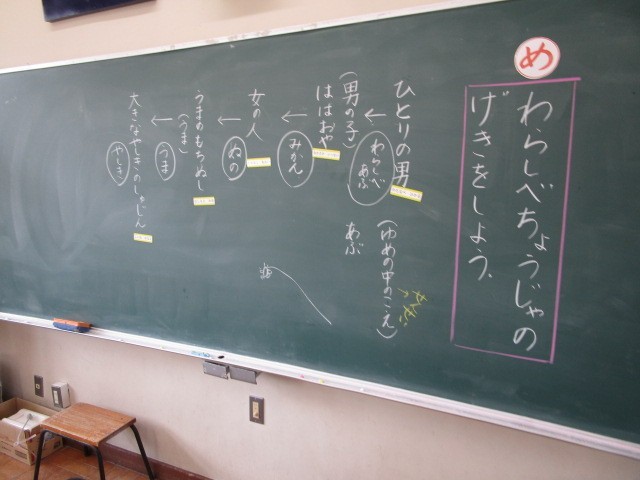 め
わらしべちょうじゃの
げきをしよう。
ひとりの男
わらしべ
あぶ
(ゆめの中のこえ)
あぶ
ははおや
(男の子)
みかん
女の人
ぬの
うまのもちぬし
(うま)
うま
大きなやしきのしゅじん
やしき